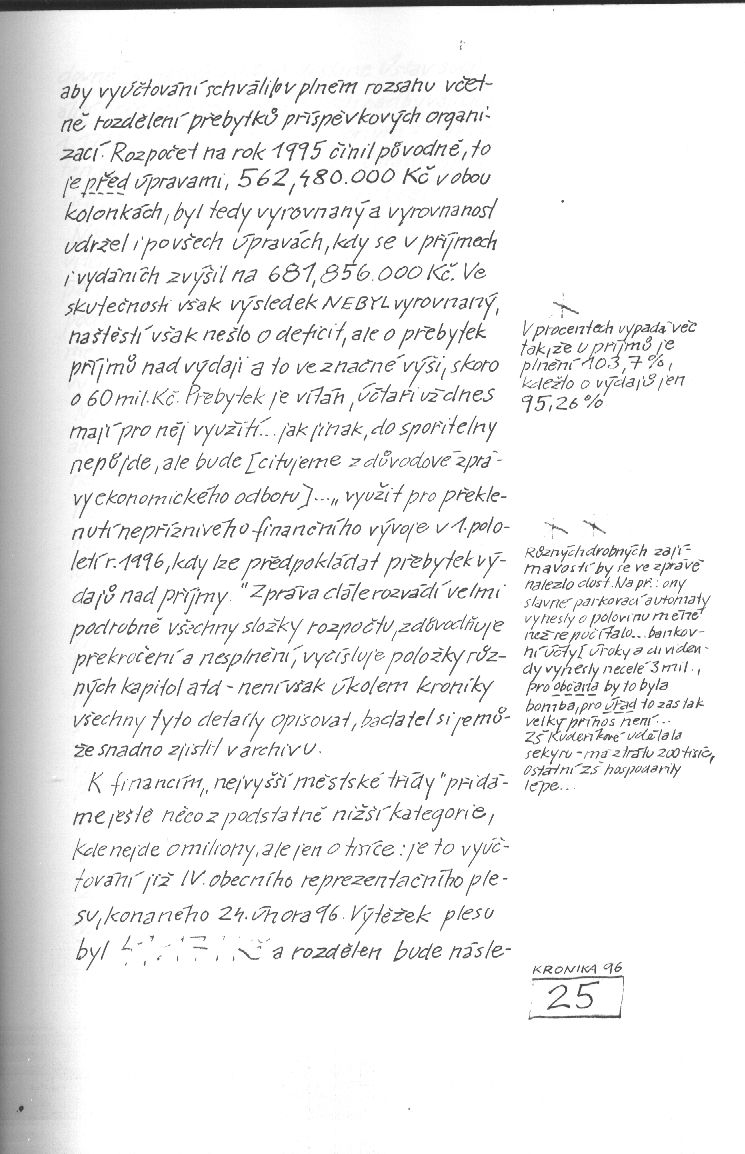 aby vyúčtování schválilo v plném rozsahu včet-
ně rozdělení přebytků příspěvkových organi-
zací. Rozpočet na rok 1995 činil původně, to
je před úpravami, 562,480.000 Kč v obou
kolonkách, byl tedy vyrovnaný a vyrovnanost
udržel i po všech úpravách, kdy se v příjmech
i vydáních zvýšil na 681,856.000 Kč. Ve
skutečnosti však výsledek NEBYL vyrovnaný,
naštěstí však nešlo o deficit, ale o přebytek
příjmů nad výdaji a to ve značné výši, skoro
o 60 mil. Kč. Přebytek je vítán, účtaři už dnes
mají pro něj využití... jak jinak, do spořitelny
nepůjde, ale bude [citujeme z důvodové zprá-
vy ekonomického odboru]...„využit pro překle-
nutí nepříznivého finančního vývoje v 1. polo-
letí r. 1996, kdy lze předpokládat přebytek vý-
dajů nad příjmy." Zpráva dále rozvádí velmi
podrobně všechny složky rozpočtu, zdůvodňuje
překročení a nesplnění, vyčísluje položky růz-
ných kapitol atd - není však úkolem kroniky
všechny tyto detaily opisovat, badatel si je mů-
že snadno zjistit v archivu.
K financím „nejvyšší městské třídy" přidá-
me ještě něco z podstatně nižší kategorie,
kde nejde o miliony, ale jen o tisíce: je to vyúč-
tování již IV. obecního reprezentačního ple-
su, konaného 24. února 96. Výtěžek plesu
byl Kč a rozdělen bude násle-
V procentech vypadá věc
tak, že u příjmů je
plnění 103,7 %,
kdežto o výdajů jen
95,26 %
Různých drobných zají-
mavostí by se ve zprávě
nalezlo dost. Např.: ony
slavné parkovací automaty
vynesly o polovinu méně
než se počítalo... bankov-
ní účty [úroky a dividen-
dy vynesly necelé 3 mil.,
pro občana by to byla
bomba, pro úřad to zas tak
velký přínos není...
ZŠ Kudeříkové udělala
sekyru - má ztrátu 200 tisíc,
ostatní ZŠ hospodařily
lépe...
KRONIKA 96
25